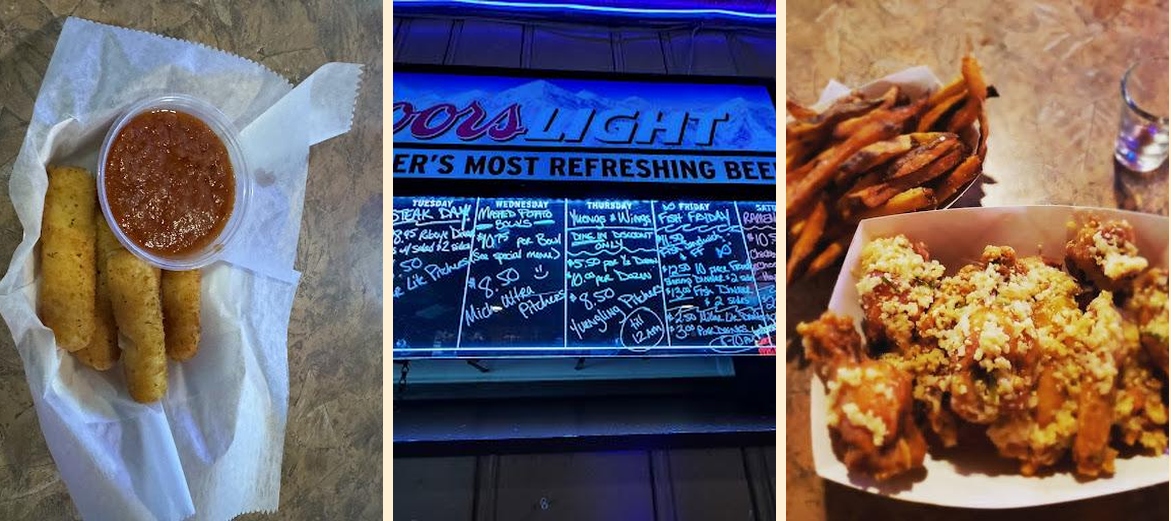 Coors LIGHT
ER'S MOST REFRESHING BEE
TUESDAY
STEAK DAY
8.95 Ribeye Dinner
w/ salad & 2 sides
.50
Lite Pitchers
WEDNESDAY
Mashed Potato
BOWLS
$10.75 per Bowl
(See special menu)
$8.50
Mich Ultra
Pitchers
THURSDAY
Yuengs & Wings
DINE IN DISCOUNT
ONLY
$5.50 per ½ Dozen
10.00 per Dozen
$8.50
Yuengling Pitchers
till
12AM
FRIDAY
FISH FRIDAY
$11.50
Fish Sandwich
$12.50 10 piece
Shrimp Dinner & 2 sides
$13.00 Fish Dinner
& 2 sides
$2.50 Miller Lite
$3.00
SAT
RAMEN
$10.5